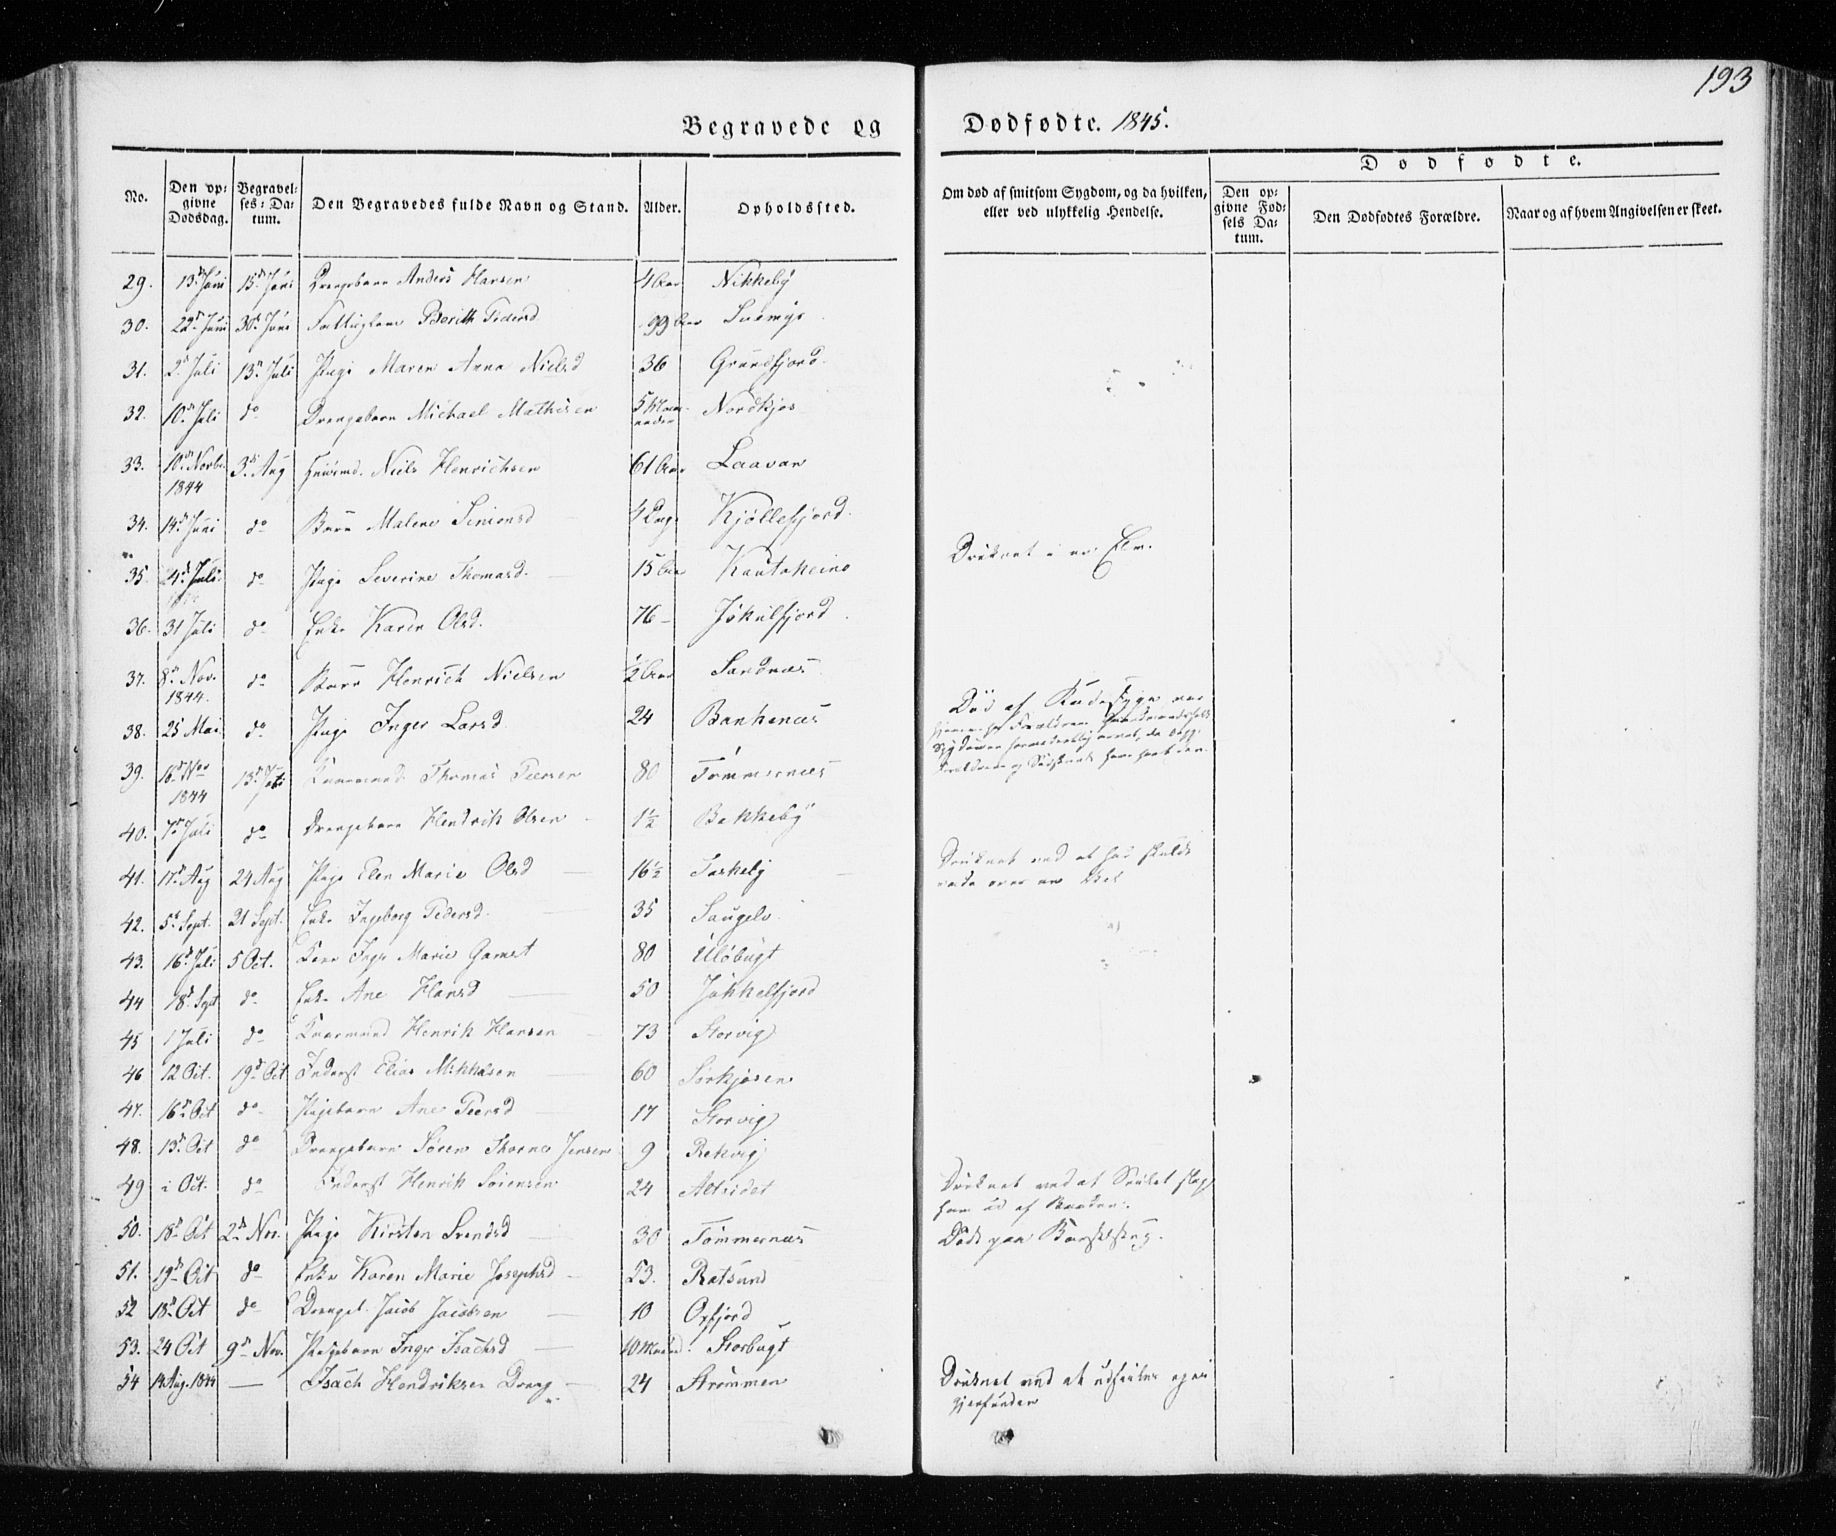 193
Begravede og Dødfødte. 1845.
No.
Den opgivne Dødsdag.
Begravelses-Datum.
Den Begravedes fulde Navn og Stand.
Alder.
Opholdssted.
Om død af smitsom Sygdom, og da hvilken, eller ved ulykkelig Hendelse.
Dødfødte.
Den opgivne Fødsels Datum.
Den Dødfødtes Forældre.
Naar og af hvem Angivelsen er skeet.
29. 13d Juni 15d Juni Drengebarn Anders Hansen 4 Aar Nikkeby
30. 22d Juni 30d Juni Berith Pedersd 99 Aar
31. 2d Juli 13d Juli Pige Maren Anna Nielsd 36 Grundfjord.
32. 10d Juli do Drengebarn Michael Mathisen 5 Maaneder Nordkjos
33. 10d Novbr. 1844 3d Aug Niels Henrichsen 61 Aar Laavan
34. 14d Juni do Barn Malene Simonsd 4 Dag Kjøllefjord.
35. 24d Juli do Pige Severine Thomasd. 15 Aar Kautokeino Druknet i en Elv.
36. 31 Juli do Enke Karen Olsd. 76 Jökulfjord.
37. 8d Nov. 1844. do Barn Henrich Nielsen ½ Aar Sandnæs
38. 25 Mai do Pige Inger Larsd. 24 Bankenæs Død af
39. 16d Nov 1844 13d Thomas Peersen 80 Tømmernæs
40. 7d Juli do Drengebarn Hendrik Olsen 1½ Bakkeby
41. 17d Aug 24 Aug Pige Elen Marie Olsd 16½ Taskeby Druknet ved at hun skulde vade over en Elv
42. 5d Sept. 21 Sept. Enke Ingeborg Pedersd. 35 Saugelv.
43. 16d Juli 5 Oct. Kone Inger Marie Gamst 80 Ulöbugt
44 18d Sept do Enke Ane Hansd 50 Jökkelfjord
45 1 Juli do Henrik Hansen 73 Storvig
46 12 Oct. 19d Oct Inderst Elias Mikkelsen 60 Sørkjosen
47. 16d Oct do Pigebarn Ane Peersd 17 Storvig
48. 13d Oct do Drengebarn Søren Jensen 9 Rekvig
49 i Oct. do Inderst Henrik Sørensen 24 Alteidet Druknet ved at Seilet slog ham ud af Baaden.
50. 18d Oct 2d Nov. Pige Kirsten Svendsd 30 Tömmernæs Døde paa Barselseng.
51. 19d Oct do Enke Karen Marie Josephsd 53. Rotsund
52 18d Oct do Drengeb. Jacob Jacobsen 10 Oxfjord
53. 24 Oct 9d Nov. Pigebarn Inger Isachsd 10 Maaned. Storbugt
54 14 Aug. 1844 — Isach Hendriksen Dreng 24 Strømmen Druknet ved at